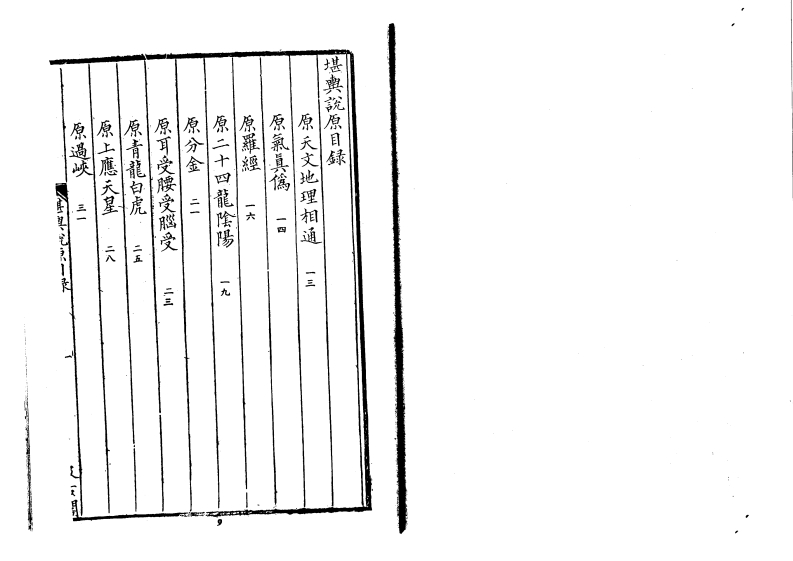 堪輿說原目録
原天文地理相通 一三
原氣眞僞 一四
原羅經 一六
原二十四龍陰陽 一九
原分金 二一
原耳受腰受腦受 二三
原青龍白虎 二五
原上應天星 二八
原過峽 三一
堪輿說原目録
9